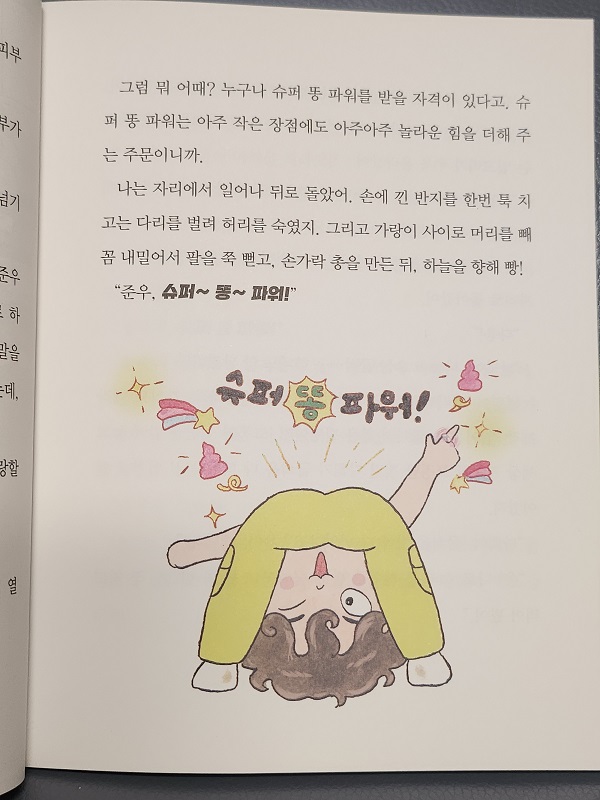 피부
부가
넘기
준우
로 하
말을
는데,
랑할
열
그럼 뭐 어때? 누구나 슈퍼 똥 파워를 받을 자격이 있다고. 슈
퍼 똥 파워는 아주 작은 장점에도 아주아주 놀라운 힘을 더해 주
는 주문이니까.
나는 자리에서 일어나 뒤로 돌았어. 손에 낀 반지를 한번 툭 치
고는 다리를 벌려 허리를 숙였지. 그리고 가랑이 사이로 머리를 빼
꼼 내밀어서 팔을 쭉 뻗고, 손가락 총을 만든 뒤, 하늘을 향해 빵!
“준우, 슈퍼~ 똥~ 파워!”
슈퍼 똥 파워!